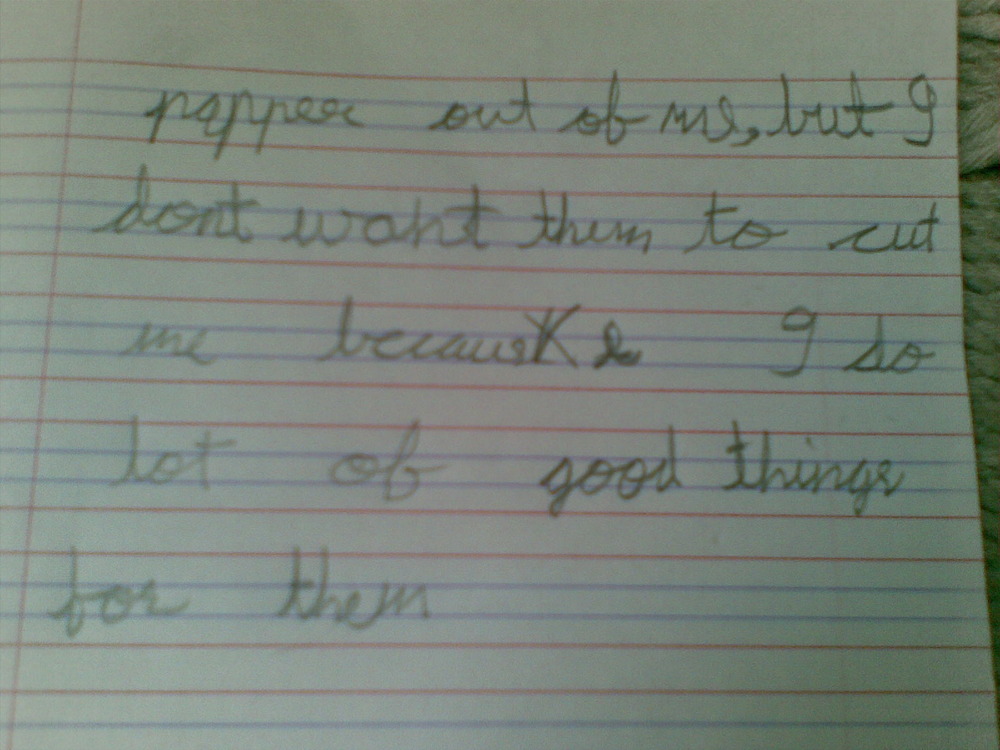 papper out of me, but I
dont want them to cut
me because I do
lot of good things
for them